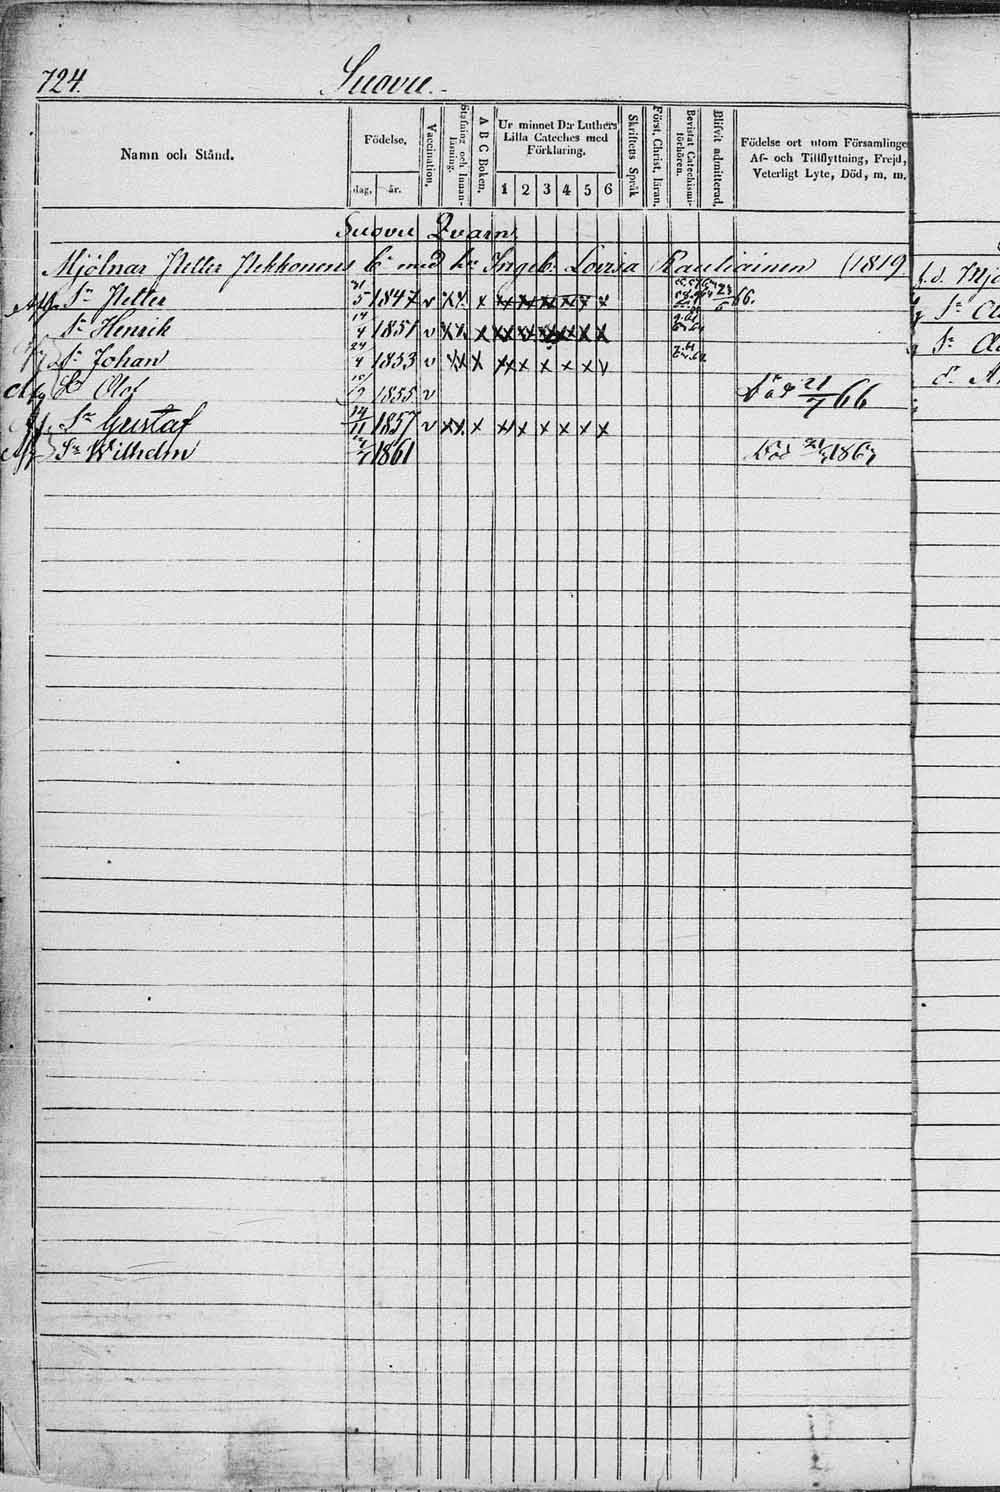 724.
Suovu.
Namn och Stånd.
Födelse.
dag. år.
Vaccination.
Stafning och Innanläsning.
A B C Boken.
Ur minnet D:r Luthers
Lilla Cateches med
Förklaring.
1 2 3 4 5 6
Skriftens Språk
Först. Christ. läran.
Bevistat Catechismiförhören.
Blifvit admitterad.
Födelse ort utom Församlingen
Af- och Tillflyttning, Frejd,
Veterligt Lyte, Död, m. m.
Suovu Qvarn
Mjölnar Petter Pekkonens Bn med hu Ingeb. Lovisa Rautiainen (1819
Sn Petter 5 1847 v x x x x x x x x 66.
Sn Henrik 4 1851 v x x x x x x x x
Sn Johan 24/4 1853 v x x x x x x x
Sn Olof 1855 v 21/7 66
Sn Gustaf 14/11 1857 v x x x x x x x x
Sn Wilhelm 1861 Död